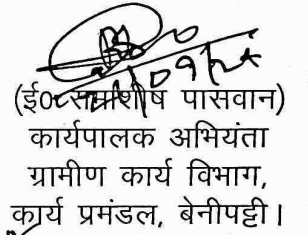 (ई० पासवान)
कार्यपालक अभियंता
ग्रामीण कार्य विभाग,
कार्य प्रमंडल, बेनीपट्टी।